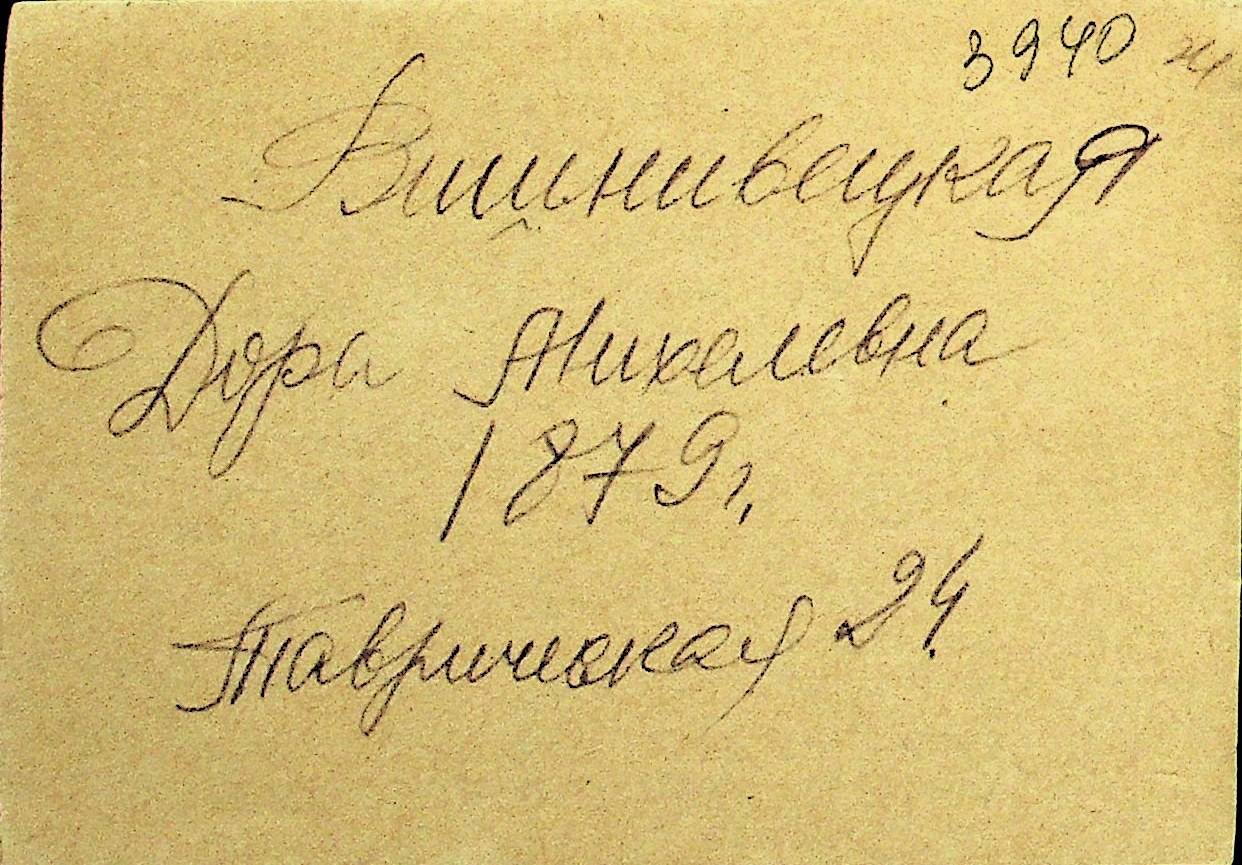 3940
Вишнивецкая
Дора Михалевна
1879 г.
Таврическая 24